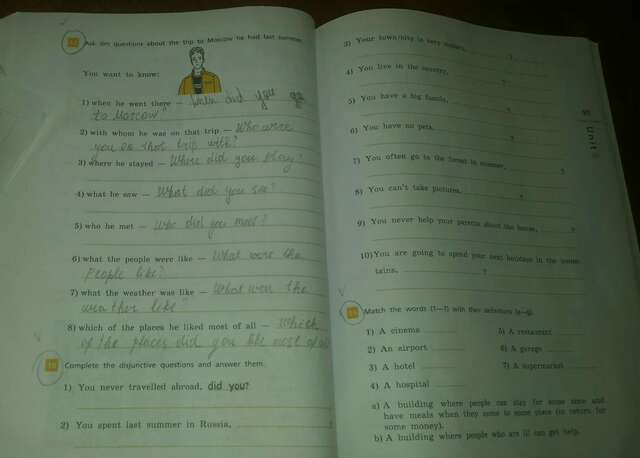 Ask Jim questions about the trip to Moscow he had last summer.
You want to know:
1) when he went there — When did you go
to Moscow?
2) with whom he was on that trip — Who were
you on that trip with?
3) where he stayed — Where did you stay?
4) what he saw — What did you see?
5) who he met — Who did you meet?
6) what the people were like — What were the
people like?
7) what the weather was like — What was the
weather like?
8) which of the places he liked most of all — Which
of the places did you like most of all
Complete the disjunctive questions and answer them.
1) You never travelled abroad, did you?
2) You spent last summer in Russia, ?
3) Your town/city is very
4) You live in the country, ?
5) You have a big family, ?
6) You have no pets, ?
7) You often go to the forest in summer, ?
8) You can't take pictures, ?
9) You never help your parents about the house, ?
10) You are going to spend your next holidays in the moun-
tains, ?
Unit
Match the words (1—7) with their definitions (a—g).
1) A cinema
2) An airport
3) A hotel
4) A hospital
5) A restaurant
6) A garage
7) A supermarket
a) A building where people can stay for some time and
have meals when they come to some place (in return for
some money).
b) A building where people who are ill can get help.